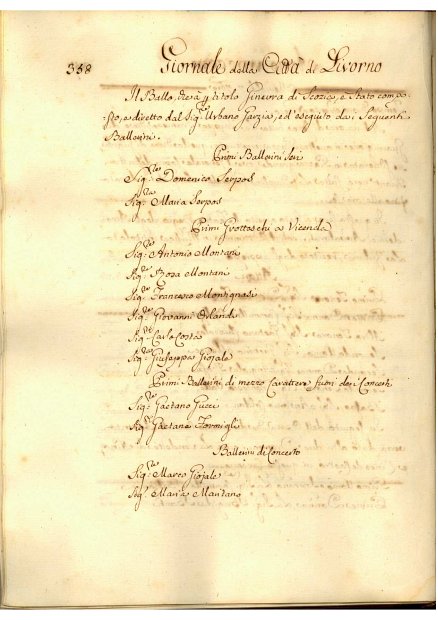 358 Giornale della Città di Livorno
Il Ballo, che à p titolo Ginevra di Scozia, è stato compo-
sto, e diretto dal Sig.r Urbano Garzia, ed eseguito dai Seguenti
Ballerini.
Primi Ballerini Serj
Sig.r Domenico Serpos
Sig.ra Maria Serpos
Primi Grotteschi a Vicenda
Sig.r Antonio Montani
Sig.ra Rosa Montani
Sig.r Francesco Montignani
Sig.r Giovanni Orlandi
Sig.r Carlo Costa
Sig.ra Giuseppa Giojale
Primi Ballerini di mezzo Carattere fuori dei Concerti
Sig.r Gaetano Gucci
Sig.ra Gaetana Formigli
Ballerini di Concerto
Sig.r Marco Giojale
Sig.ra Maria Mantano